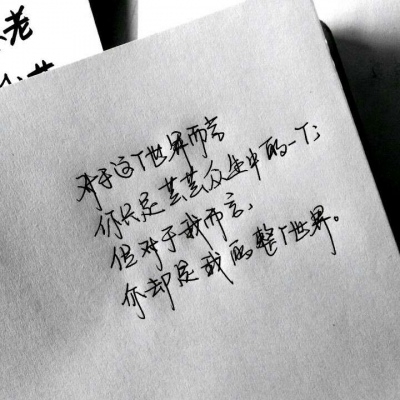 老
对于这个世界而言
你只是芸芸众生中的一个；
但对于我而言，
你却是我的整个世界。